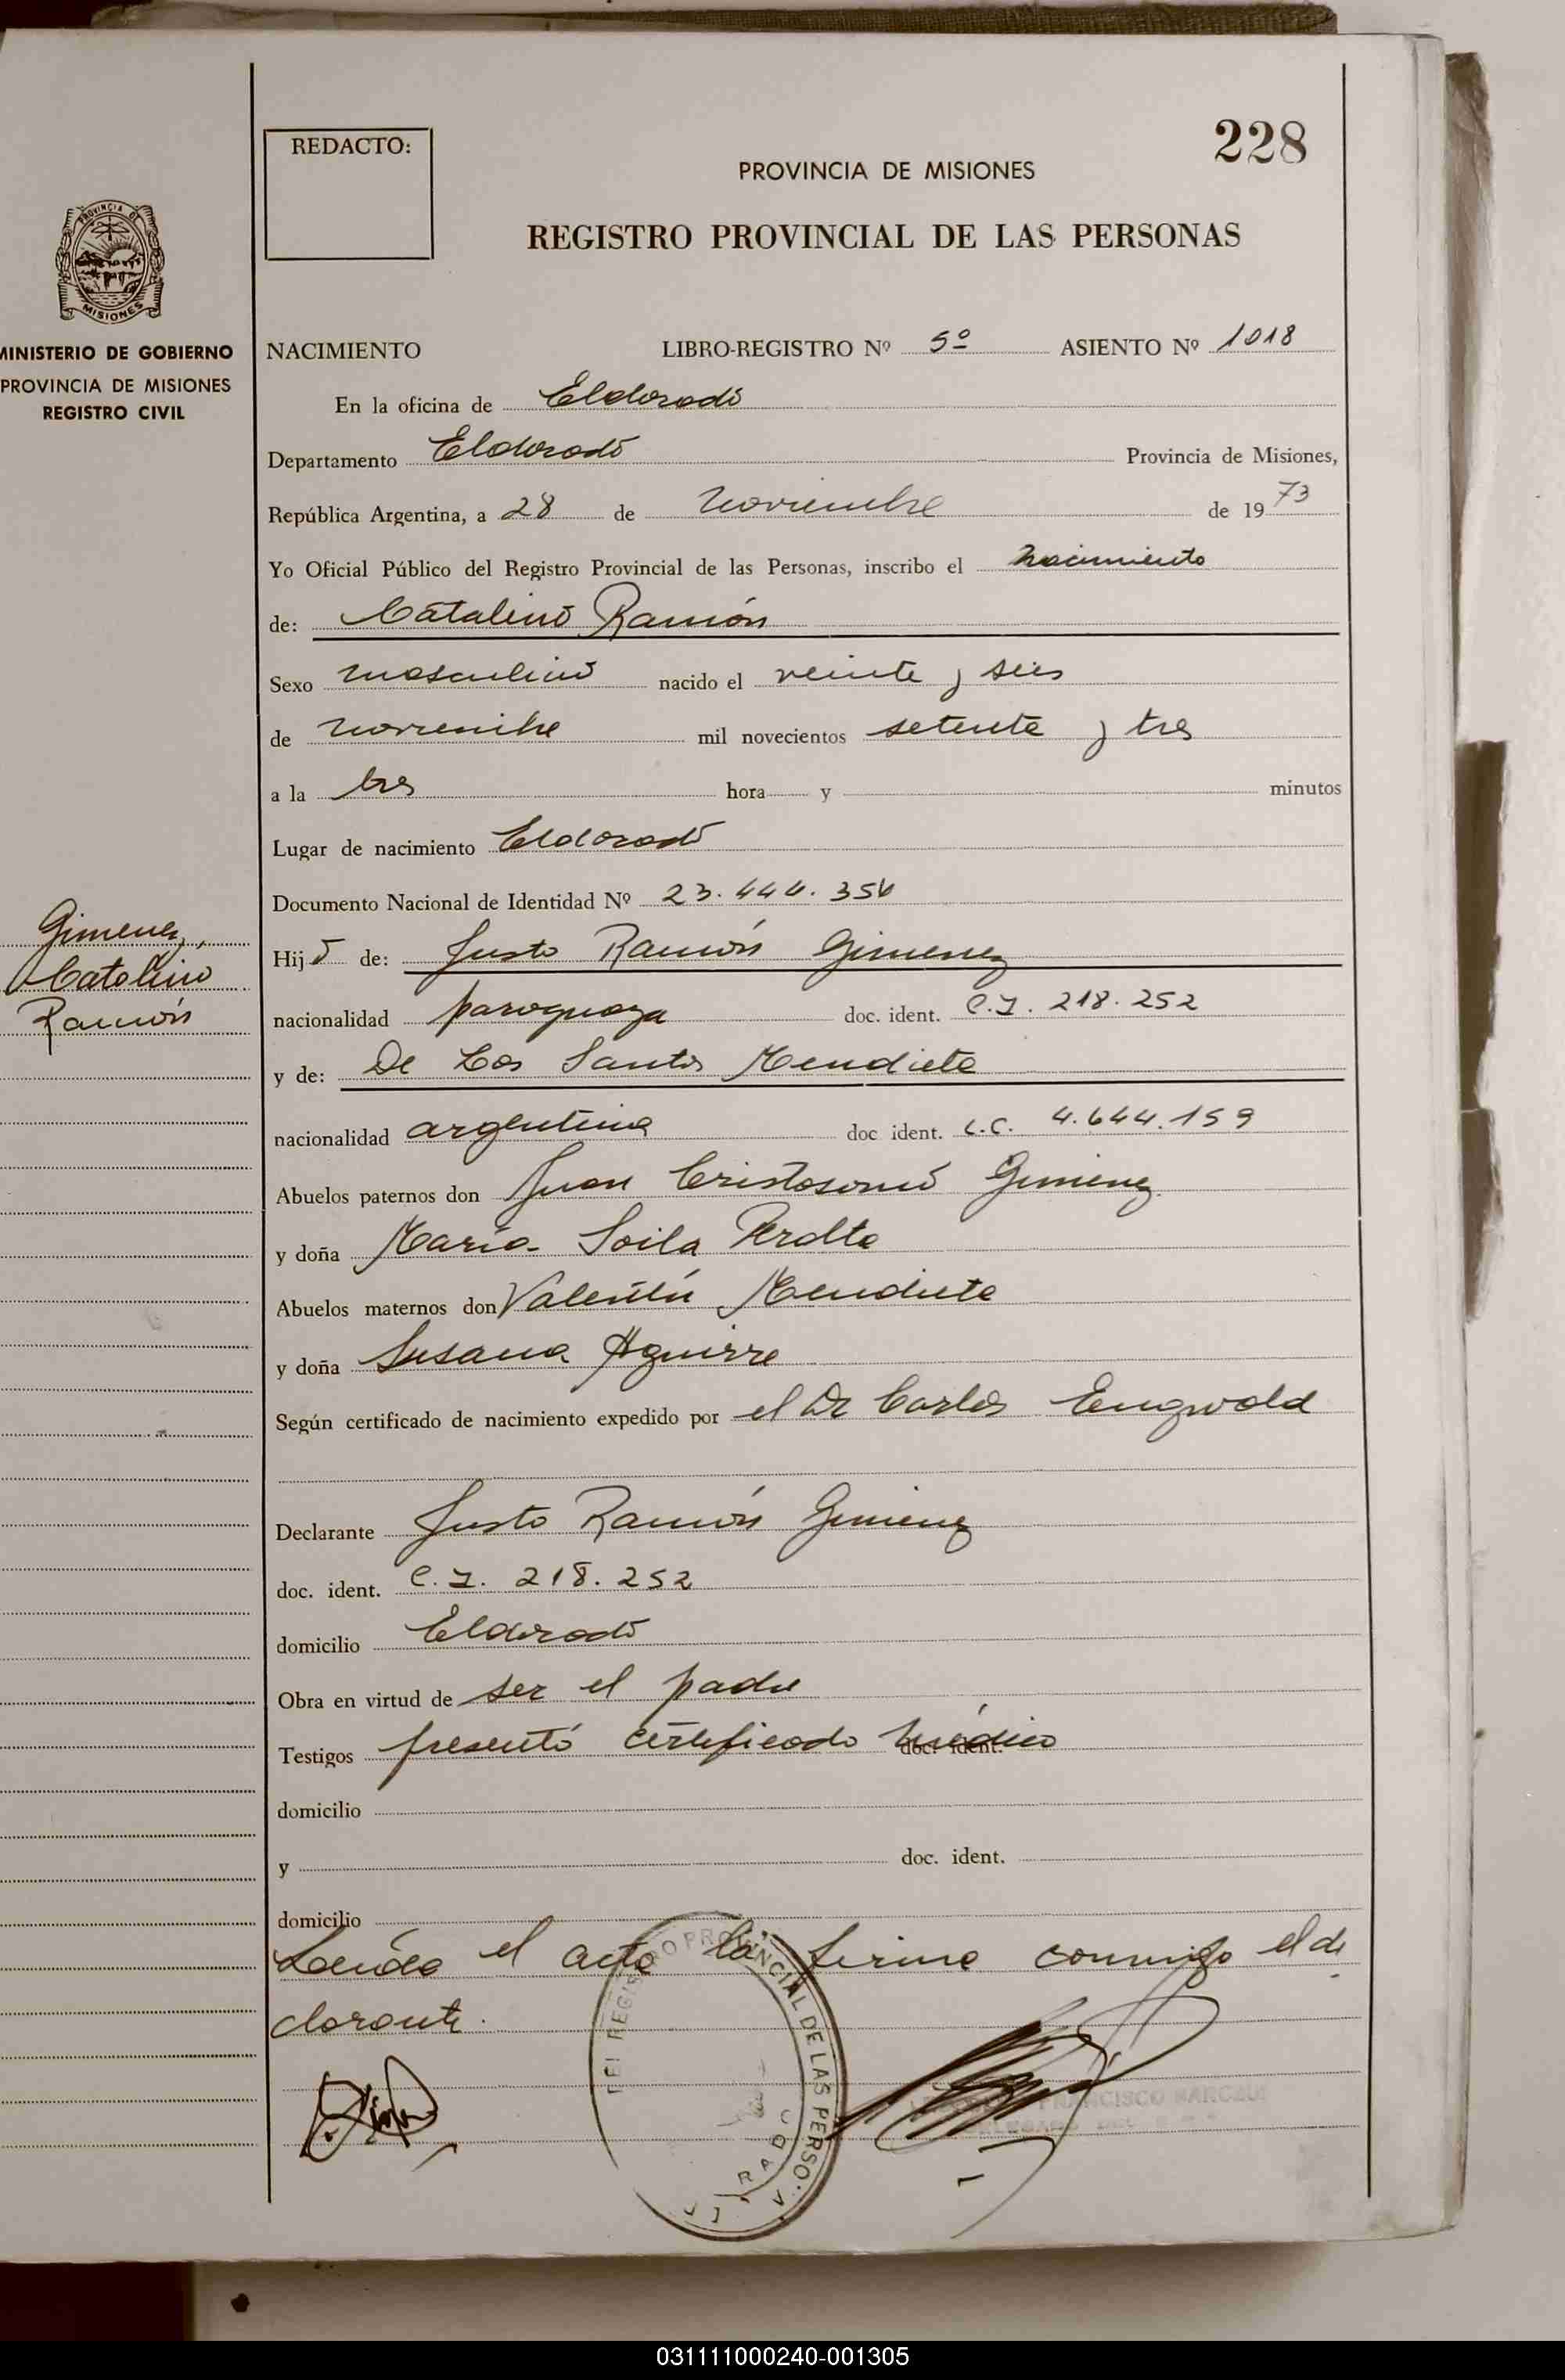 228
REDACTO:
PROVINCIA DE MISIONES
REGISTRO PROVINCIAL DE LAS PERSONAS
PROVINCIA DE
MISIONES
MINISTERIO DE GOBIERNO
PROVINCIA DE MISIONES
REGISTRO CIVIL
NACIMIENTO LIBRO-REGISTRO Nº 5º ASIENTO Nº 1018
En la oficina de Eldorado
Departamento Eldorado Provincia de Misiones,
República Argentina, a 28 de noviembre de 1973
Yo Oficial Público del Registro Provincial de las Personas, inscribo el nacimiento
de: Catalino Ramón
Sexo masculino nacido el veinte y seis
de noviembre mil novecientos setenta y tres
a la tres hora y minutos
Lugar de nacimiento Eldorado
Documento Nacional de Identidad Nº 23.444.356
Gimenez,
Catalino
Ramón
Hijo de: Justo Ramón Gimenez
nacionalidad paraguaya doc. ident. C.I. 218.252
y de: De Los Santos Mendieta
nacionalidad argentina doc ident. L.C. 4.644.159
Abuelos paternos don Juan Cristosomo Gimenez
y doña María Soila Peralta
Abuelos maternos don Valentín Mendieta
y doña Susana Aguirre
Según certificado de nacimiento expedido por el Dr Carlos Engwald
Declarante Justo Ramón Gimenez
doc. ident. C.I. 218.252
domicilio Eldorado
Obra en virtud de ser el padre
Testigos presentó certificado médico doc. ident.
domicilio
y doc. ident.
domicilio
Leída el acta la firma conmigo el de
clarante.
DEL REGISTRO PROVINCIAL DE LAS PERSO
FRANCISCO
031111000240-001305